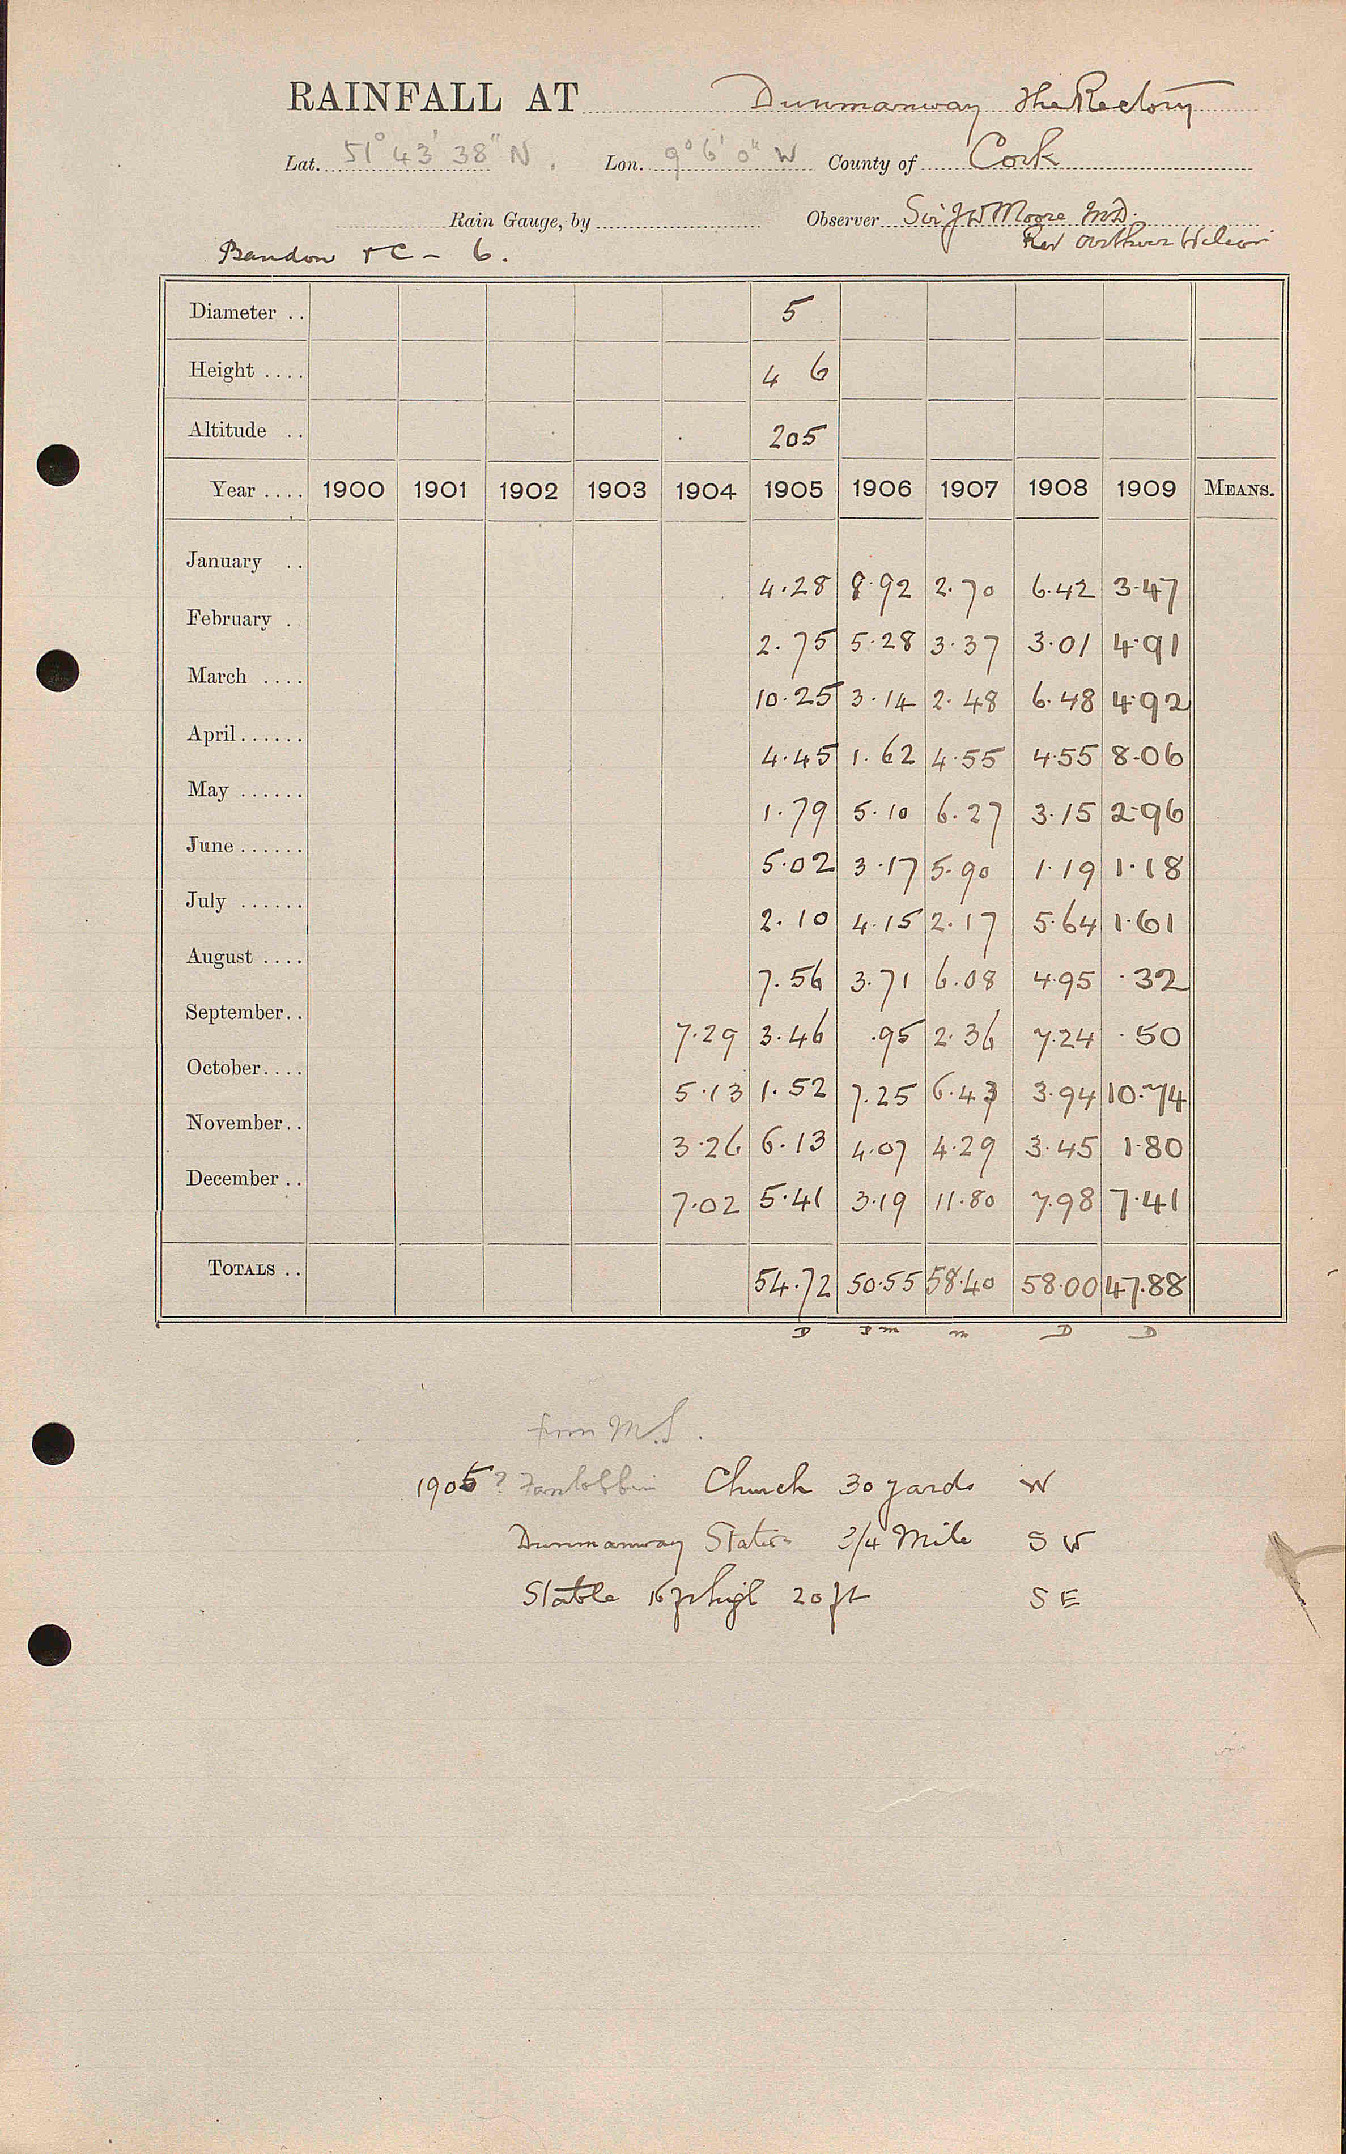 RAINFALL AT Dunmanway The Rectory
Lat. 51° 43' 38" N. Lon. 9° 6' 0" W County of Cork
Rain Gauge, by Observer Sir J W Moore M.D.
Rev Arthur Wilson
Bandon &C - 6.
Diameter .. 5
Height .... 4 6
Altitude .. 205
Year .... 1900 1901 1902 1903 1904 1905 1906 1907 1908 1909 MEANS.
January .. 4.28 8.92 2.70 6.42 3.47
February . 2.75 5.28 3.37 3.01 4.91
March .... 10.25 3.14 2.48 6.48 4.92
April...... 4.45 1.62 4.55 4.55 8.06
May ...... 1.79 5.10 6.27 3.15 2.96
June...... 5.02 3.17 5.90 1.19 1.18
July ...... 2.10 4.15 2.17 5.64 1.61
August .... 7.56 3.71 6.08 4.95 .32
September.. 7.29 3.46 .95 2.36 7.24 .50
October.... 5.13 1.52 7.25 6.43 3.94 10.74
November.. 3.26 6.13 4.07 4.29 3.45 1.80
December .. 7.02 5.41 3.19 11.80 7.98 7.41
TOTALS .. 54.72 50.55 58.40 58.00 47.88
D D m m D D
from M.S.
1905 ? Fanlobbin Church 30 yards W
Dunmanway Station 3/4 Mile S W
Stable 16 ft high 20 ft S E